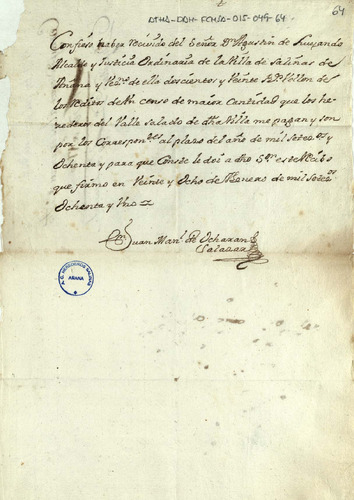 ATHA-DDH-FCHSA-015-049-64
64
Confieso haber recivido del Señor Dn Agustin de Luyando
Alcalde y Justicia Ordinaria de la Villa de Salinas de
Añana y Vezº de ella doscientos y Veinte Rs Vellon de
los reditos de Un censo de maior Cantidad que los he-
rederos del Valle Salado de dha Villa me pagan y son
por los Correspondtes al plazo del año de mil Setecos y
Ochenta y para que Conste le dei a dho Sor este Recibo
que firmo en Veinte y Ocho de de mil Setecos
Ochenta y Uno
Juan Manl de Ocharan
Salazar
AÑANA